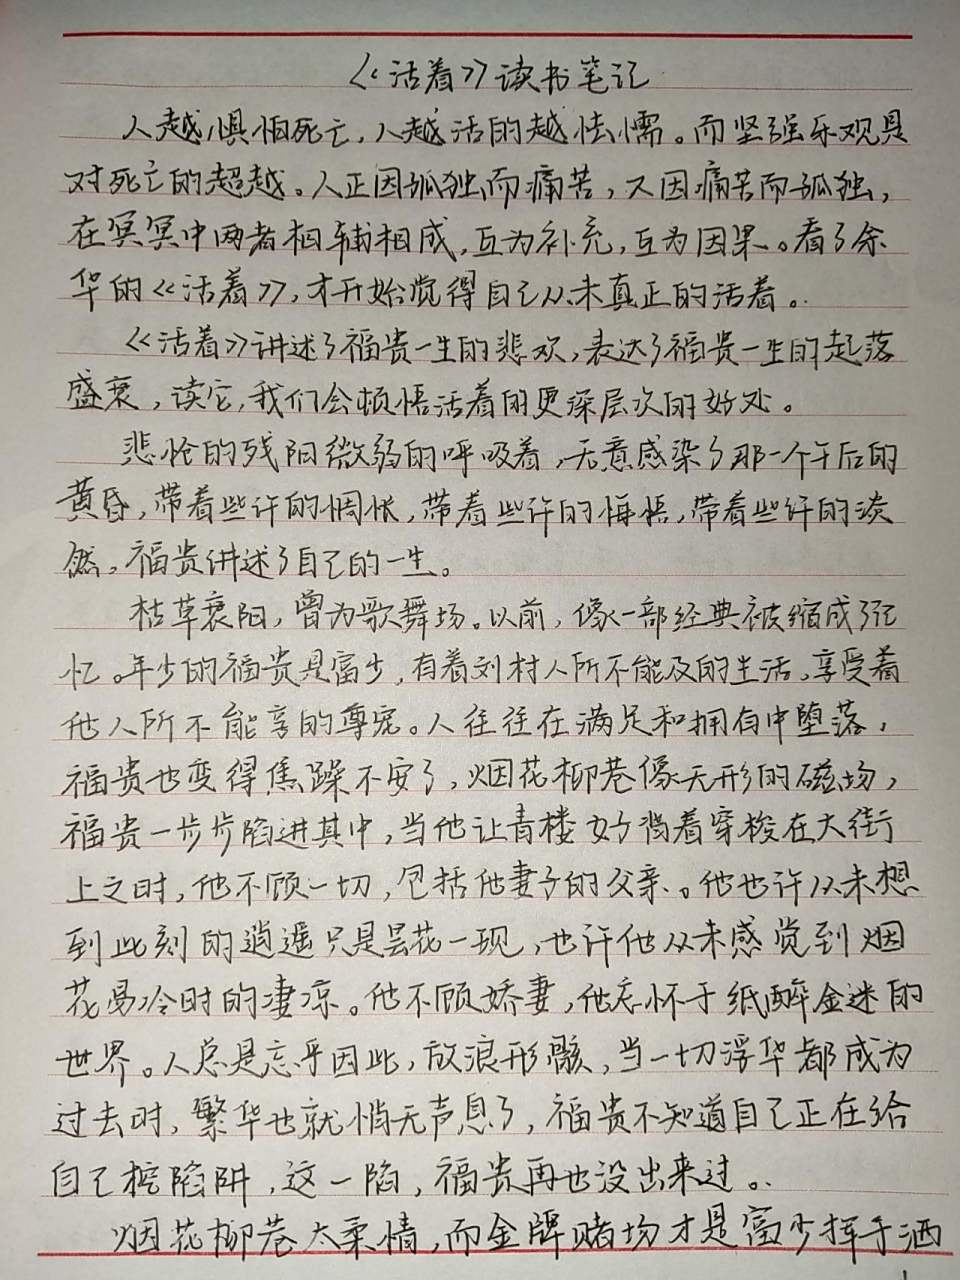 《活着》读书笔记
人越惧怕死亡，人越活的越怯懦。而坚强乐观是
对死亡的超越。人正因孤独而痛苦，又因痛苦而孤独，
在冥冥中两者相辅相成，互为补充，互为因果。看了余
华的《活着》，才开始觉得自己从未真正的活着。
《活着》讲述了福贵一生的悲欢，表达了福贵一生的起落
盛衰，读它，我们会顿悟活着的更深层次的好处。
悲怆的残阳微弱的呼吸着，无意感染了那一个午后的
黄昏，带着些许的惆怅，带着些许的悔悟，带着些许的淡
然，福贵讲述了自己的一生。
枯草衰阳，曾为歌舞场。以前，像一部经典被缩成了记
忆。年少的福贵是富少，有着刘村人所不能及的生活，享受着
他人所不能享的尊宠。人往往在满足和拥有中堕落，
福贵也变得焦躁不安了，烟花柳巷像无形的磁场，
福贵一步步陷进其中，当他让青楼女子揹着穿梭在大街
上之时，他不顾一切，包括他妻子的父亲。他也许从未想
到此刻的逍遥只是昙花一现，也许他从未感觉到烟
花易冷时的凄凉。他不顾娇妻，他忘怀于纸醉金迷的
世界。人总是忘乎因此，放浪形骸，当一切浮华都成为
过去时，繁华也就悄无声息了，福贵不知道自己正在给
自己挖陷阱，这一陷，福贵再也没出来过。
烟花柳巷太柔情，而金牌赌场才是富少挥手洒